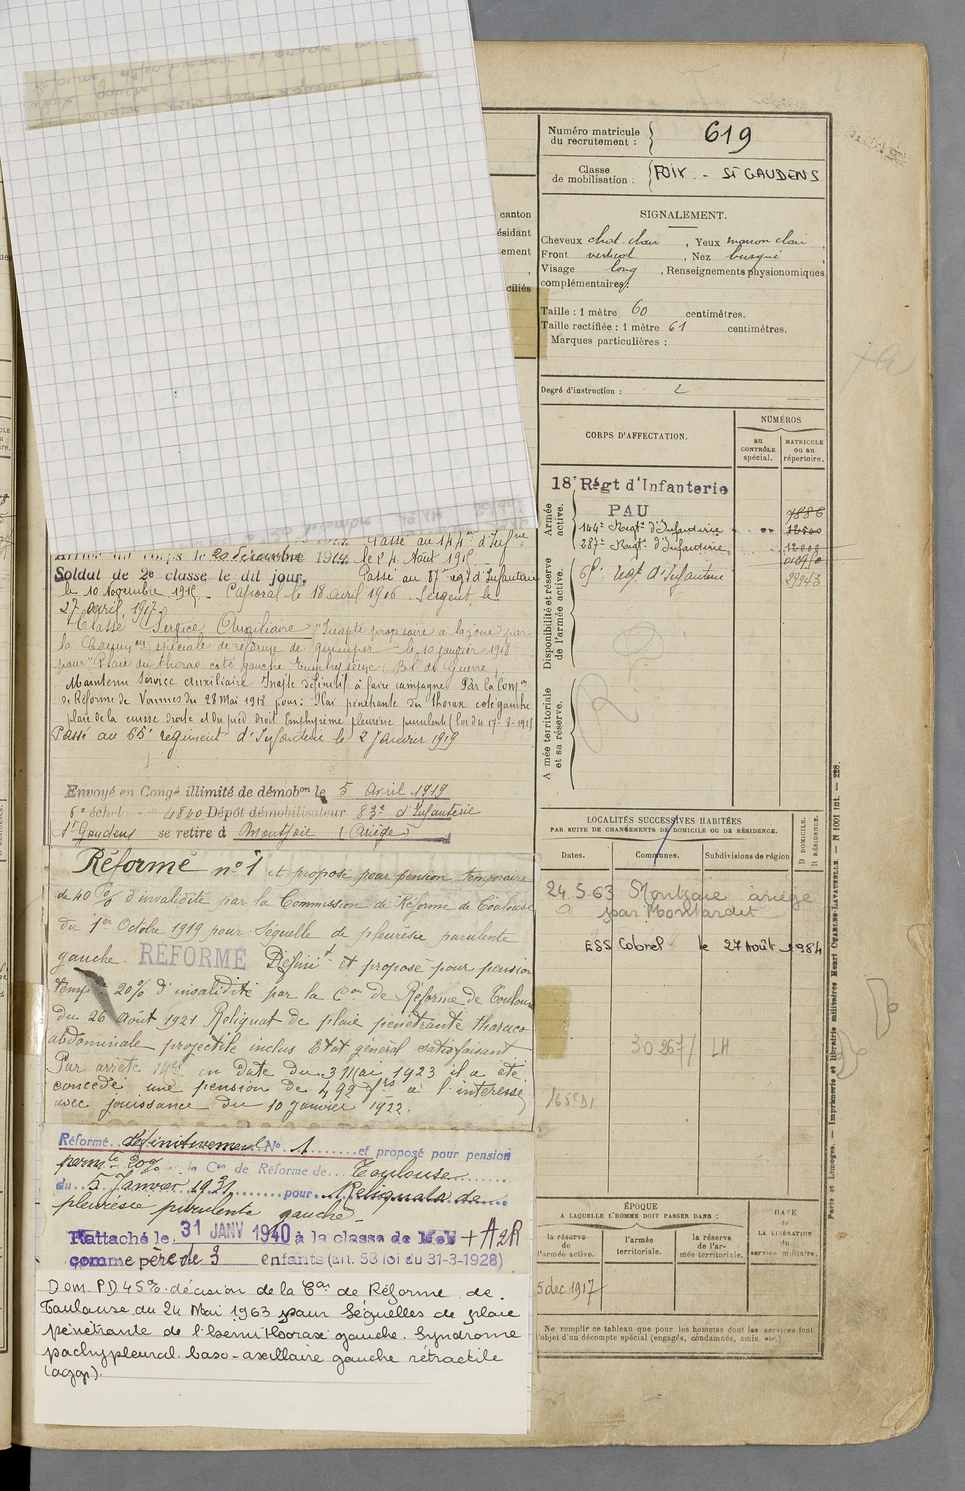 Numéro matricule du recrutement : 619
Classe de mobilisation : FOIX - St GAUDENS
canton
ésidant
ement
ciliés
SIGNALEMENT.
Cheveux chat. clair, Yeux marron clair,
Front vertical, Nez busqué,
Visage long, Renseignements physionomiques
complémentaires :
Taille : 1 mètre 60 centimètres.
Taille rectifiée : 1 mètre 61 centimètres.
Marques particulières :
Degré d'instruction : 2
CORPS D'AFFECTATION.
NUMÉROS
au CONTRÔLE spécial.
MATRICULE ou au répertoire.
Armée active.
18e Régt d'Infanterie
PAU
144e Regt d'Infanterie
287e Regt d'Infanterie
Disponibilité et réserve de l'armée active.
65e regt d'Infanterie 29943
Armée territoriale et sa réserve.
Passé au 144e d'Infrie
le 20 décembre 1914 le 24 Août 1915.
Soldat de 2e classe le dit jour. Passé au 87e rgt d'Infanterie
le 10 Novembre 1915. Caporal le 18 avril 1916. Sergent le
27 avril 1917.
Classé Service Auxiliaire "Inapte provisoire à" par
la Common spéciale de réforme de quimper le 10 janvier 1918
pour "Plaie du thorax coté gauche Emphysème, Bl. de Guerre,
Maintenu Service auxiliaire Inapte définitif à faire campagne Par la Comon
de Réforme de Vannes du 28 Mai 1918 pour: Plaie pénétrante du thorax coté gauche
plaie de la cuisse droite et du pied droit Emphysème pleurésie purulente (loi du 17-8-1915
Passé au 65e régiment d'Infanterie le 2 Janvier 1919
Envoyé en Congé illimité de démobon le 5 Avril 1919
6e échelon 4840 Dépôt démobilisateur 83e d'Infanterie
St Gaudens se retire à Montfaie (Ariège)
Réformé no 1 et proposé pour pension temporaire
de 40 % d'invalidité par la Commission de Réforme de Toulouse
du 1er Octobre 1919 pour: Séquelle de pleurésie purulente
gauche. RÉFORMÉ Définit et proposé pour pension
temp. 20% d'invalidité par la Con de Réforme de Toulouse
du 26 août 1921 Reliquat de plaie pénétrante thoraco
abdominale projectile inclus Etat général satisfaisant
Par arrêté en date du 31 Mai 1923 il a été
concédé une pension de 492 frs à l'intéressé
avec jouissance du 10 Janvier 1922.
Réformé définitivement No 1 et proposé pour pension
permte 20% la Con de Réforme de Toulouse
du 5 Janvier 1931 pour Reliquats de
pleurésie purulente gauche
Rattaché le 31 JANV 1940 à la classe de MoB + A2R
comme père de 3 enfants (art. 58 loi du 31-3-1928)
Dom. P.D 45% décision de la Con de Réforme de
Toulouse du 24 Mai 1963 pour Séquelles de plaie
pénétrante de l'hemithorax gauche. Syndrome
pachypleural baso-axillaire gauche rétractile
(agg).
LOCALITÉS SUCCESSIVES HABITÉES
PAR SUITE DE CHANGEMENTS DE DOMICILE OU DE RÉSIDENCE.
Dates. Communes. Subdivisions de région
D DOMICILE.
R RÉSIDENCE.
24.5.63 Montfaie ariège
par Montardit
ESS Cabrel le 27 Août 1984
30267/ LH
ÉPOQUE
A LAQUELLE L'HOMME DOIT PASSER DANS :
DATE de LA LIBÉRATION du service militaire.
la réserve de l'armée active.
l'armée territoriale.
la réserve de l'armée territoriale.
5 dec 1917
Ne remplir ce tableau que pour les hommes dont les services font
l'objet d'un décompte spécial (engagés, condamnés, omis, etc.)
Paris et Limoges. — Imprimerie et librairie militaires Henri CHARLES-LAVAUZELLE.